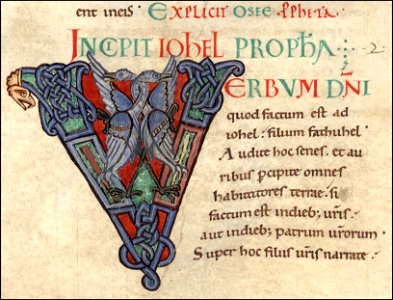 ent ineis. EXPLICIT OSEE PPHETA.
INCIPIT IOHEL PROPHA
VERBUM DNI
quod factum est ad
iohel: filium fathuhel.
Audite hoc senes. et au
ribus pcipite omnes
habitatores terrae. si
factum est indieb; uris.
aut indieb; patrum urorum.
Super hoc filiis uris narrate.